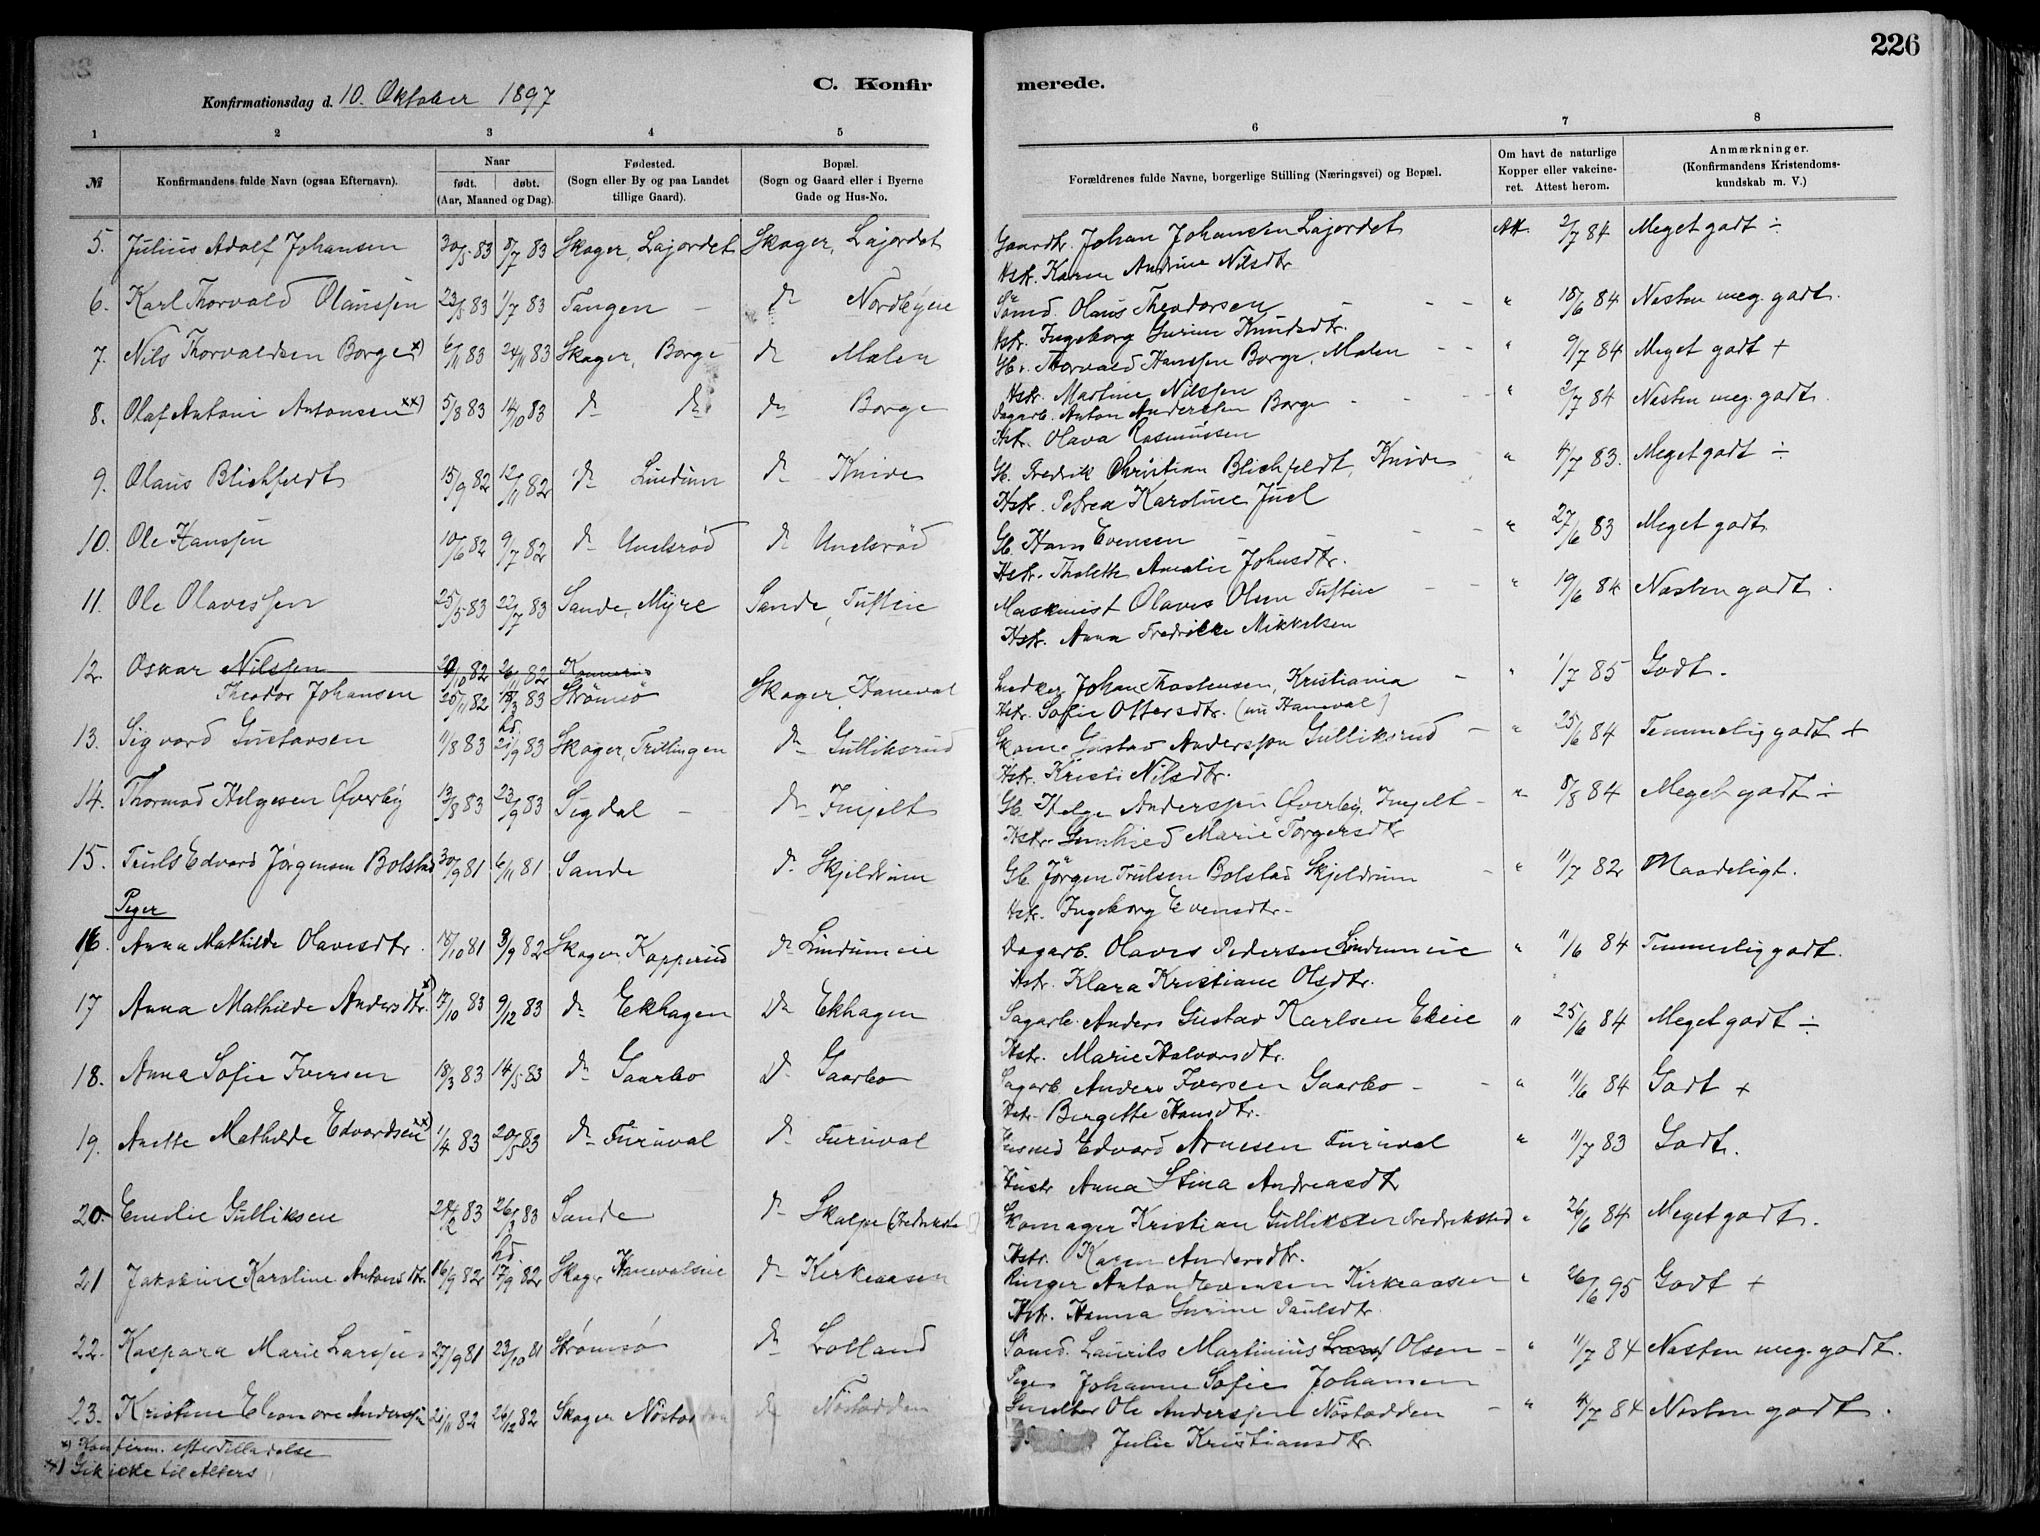 226
Konfirmationsdag d. 10. Oktober 1897
C. Konfirmerede.
1 2 3 4 5 6 7 8
№ Konfirmandens fulde Navn (ogsaa Efternavn). Naar født. døbt. (Aar, Maaned og Dag). Fødested. (Sogn eller By og paa Landet tillige Gaard). Bopæl. (Sogn og Gaard eller i Byerne Gade og Hus-No. Forældrenes fulde Navne, borgerlige Stilling (Næringsvei) og Bopæl. Om havt de naturlige Kopper eller vakcineret. Attest herom. Anmærkninger. (Konfirmandens Kristendomskundskab m. V.)
5. Julius Adolf Johansen 30/5 83 8/7 83 Skoger, Lajordet Skoger, Lajordet Gaardbr. Johan Johansen Lajordet Att. 2/7 84 Meget godt ÷
Hstr. Karen Andrine Nilsdtr.
6. Karl Thorvald Olaussen 23/5 83 1/7 83 Tangen - do Nordbyeie Sömd. Olaus Theodorsen - - - " 18/6 84 Nesten meg. godt.
Hstr. Ingeborg Gurine Knudsdtr.
7. Nils Thorvaldsen Borge x) 6/11 83 24/11 83 Skoger, Borge do Malen Gb. Thorvald Hanssen Borge, Malen - - " 9/7 84 Meget godt +
Hstr. Martine Nilssen
8. Olaf Antoni Antonsen xx) 5/8 83 14/10 83 do do do Borge Dagarb. Anton Anderssen Borge - - - " 2/7 84 Nesten meg. godt.
Hstr. Olava Rasmussen
9. Olaus Blichfeldt 15/9 82 12/11 82 do Lindum do Knive Gb. Fredrik Christian Blichfeldt, Knive " 4/7 83. Meget godt ÷
Hstr. Petrea Karoline Juel
10. Ole Hanssen 10/6 82 9/7 82 do Unelsröd do Unelsröd Gb. Hans Evensen - - - " 27/6 83 Meget godt
Hstr. Tholette Amalie Johnsdtr.
11. Ole Olavessen 25/5 83 22/7 83 Sande, Myre Sande, Tufteie Maskinist Olaves Olsen Tufteie - - " 19/6 84 Nesten godt.
Hstr. Anna Fredrikke Mikkelsen
12. Oskar Nilssen 20/10 82 26/11 82
Theodor Johansen 25/11 82 18/3 83 Strømsö Skoger, Haneval Johan Thostensen, Kristiania - " 1/7 85 Godt.
Hstr. Sofie Ottersdtr. (nu Haneval)
13. Sigvard Gustavsen 11/8 83 hd. 21/9 83 Skoger, Trillingen do Gulliksrud Skom. Gustav Anderssen Gulliksrud - " 25/6 84 Temmelig godt +
Hstr. Kristi Nilsdtr.
14. Thormod Helgesen Øverby 13/8 83 23/9 83 Sigdal - do Imjelt Gb. Helge Anderssen Øverby, Imjelt - " 8/8 84 Meget godt ÷
Hstr. Gunhild Marie Torgersdtr
15. Truls Edvard Jörgensen Bolstad 30/9 81 6/11 81 Sande do Skjeldrum Gb. Jörgen Trulsen Bolstad Skjeldrum - " 11/7 82 Maadeligt.
Hstr. Ingeborg Evensdtr.
Piger
16. Anna Mathilde Olavesdtr. 18/10 81 3/9 82 Skoger Kopperud do Lindumeie Dagarb. Olaves Pedersen Lindumeie " 11/6 84 Temmelig godt.
Hstr. Klara Kristiane Olsdtr.
17 Anna Mathilde Andersdtr. x) 17/10 83 9/12 83 do Ekhagen do Ekhagen Sagarb. Anders Gustav Karlsen Ekeie " 25/6 84 Meget godt ÷
Hstr. Marie Halvorsdtr.
18. Anna Sofie Iversen 18/3 83 14/5 83 do Gaarbo do Gaarbo Sagarb. Anders Iversen Gaarbo - - " 11/6 84 Godt +
Hstr. Bergette Hansdtr.
19. Anette Mathilde Edvardsen xx) 1/4 83 20/5 83 do Furuval do Furuval Husmd Edvard Arnesen Furuval " 11/7 83 Godt.
Hustr Anna Stina Andreasdtr
20. Emilie Gulliksen 24/2 83 26/3 83 Sande do Skalpe (Fredriksta Skomager Kristian Gulliksen Fredrikstad " 26/6 84 Meget godt.
Hstr. Karen Andersdtr.
21 Jakobine Karoline Antonsdtr. 16/9 82 hd. 17/9 82 Skoger Hanevalseie do Kirkeaasen Ringer Anton Evensen Kirkeaasen " 26/6 95 Godt +
Hstr. Hanna Gurine Paulsdtr.
22. Kaspara Marie Larssen 27/9 81 23/10 81 Strømsø do Lolland Sömd. Laurits Martinius Olsen - " 11/7 84 Nesten meg. godt.
Pige Johanne Sofie Johansen
23. Kristine Eleonore Anderssen 21/11 82 26/12 82 Skoger Nöstodden do Nöstodden Ole Anderssen Nöstodden - " 4/7 84 Nesten godt.
Julie Kristiansdtr.
x) Konfirm. efter Tilladelse
xx) Gik ikke til Alters